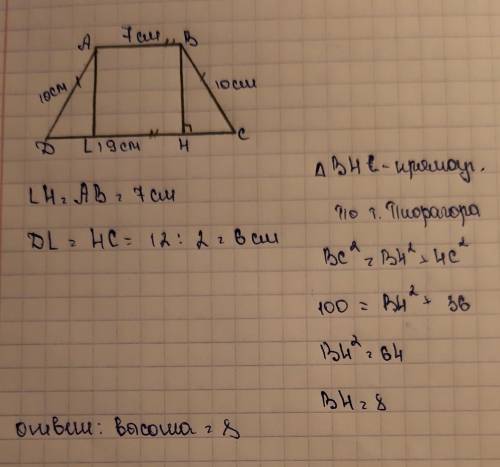 7см
A B
10см 10см
D L 19см H C
LH = AB = 7см
DL = HC = 12 : 2 = 6см
△BHC - прямоуг.
по т. Пифагора
BC² = BH² + HC²
100 = BH² + 36
BH² = 64
BH = 8
ответ: высота = 8